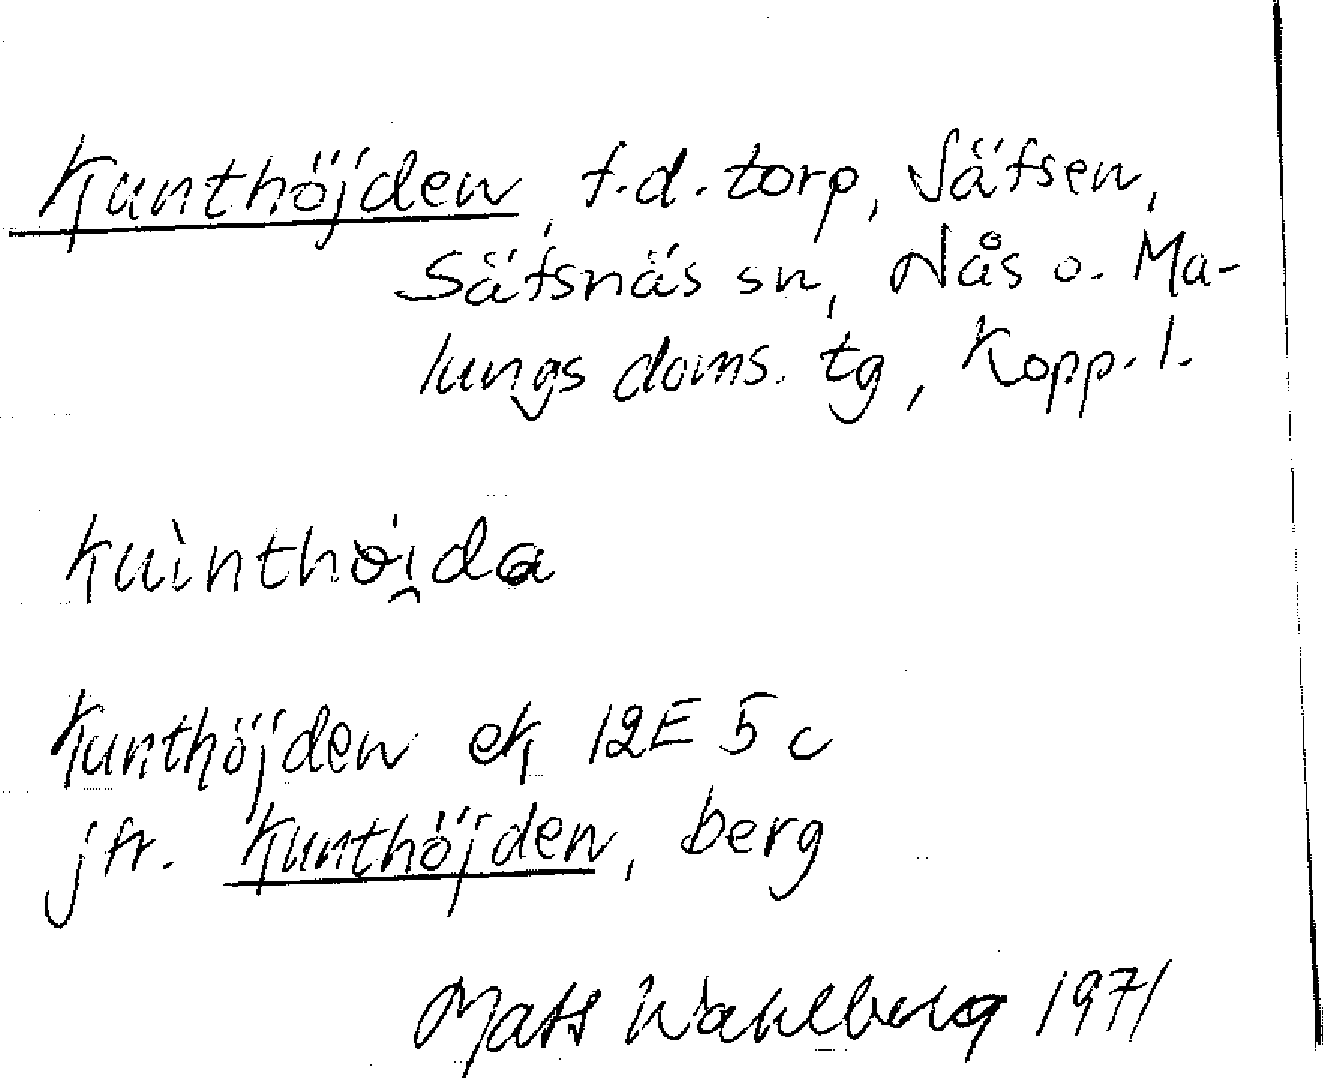 Kunthöjden, f.d. torp, Säfsen,
Säfsnäs sn, Nås o. Ma-
lungs doms. tg, Kopp. l.
Kunthöjden ek 12E 5c
jfr. Kunthöjden, berg
Mats Wahlberg 1971